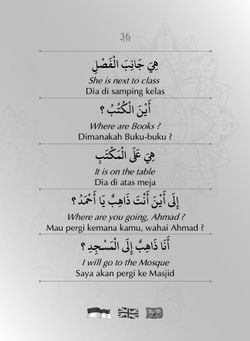 36
هِيَ جَانِبَ الْفَصْلِ
She is next to class
Dia di samping kelas
أَيْنَ الْكُتُبُ ؟
Where are Books ?
Dimanakah Buku-buku ?
هِيَ عَلَى الْمَكْتَبِ
It is on the table
Dia di atas meja
إِلَى أَيْنَ أَنْتَ ذَاهِبٌ يَا أَحْمَدُ ؟
Where are you going, Ahmad ?
Mau pergi kemana kamu, wahai Ahmad ?
أَنَا ذَاهِبٌ إِلَى الْمَسْجِدِ ؟
I will go to the Mosque
Saya akan pergi ke Masjid